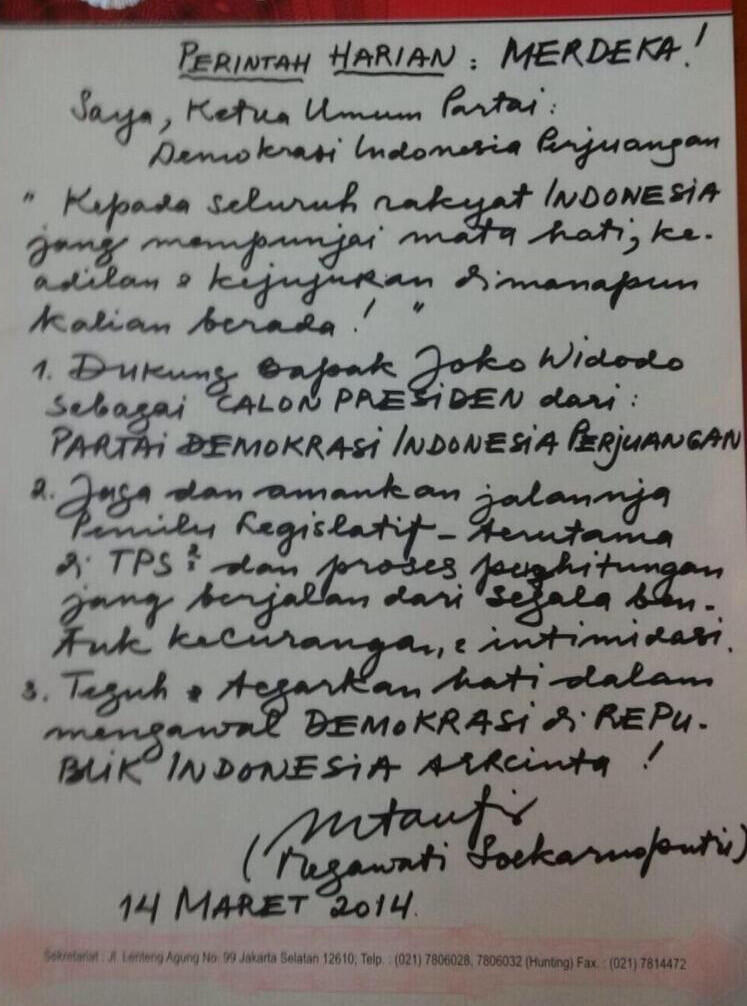 PERINTAH HARIAN : MERDEKA!
Saya, Ketua Umum Partai :
Demokrasi Indonesia Perjuangan
" Kepada seluruh rakyat INDONESIA
jang mempunjai mata hati, ke-
adilan & kejujuran dimanapun
kalian berada! "
1. Dukung Bapak Joko Widodo
sebagai CALON PRESIDEN dari :
PARTAI DEMOKRASI INDONESIA PERJUANGAN
2. Jaga dan amankan jalannja
Pemilu Legislatif - terutama
di TPS² dan proses penghitungan
jang berjalan dari segala ben-
tuk kecurangan, & intimidasi.
3. Teguh & tegarkan hati dalam
mengawal DEMOKRASI di REPU-
BLIK INDONESIA tercinta !
(Megawati Soekarnoputri)
14 MARET 2014.
Sekretariat : Jl. Lenteng Agung No. 99 Jakarta Selatan 12610, Telp. : (021) 7806028, 7806032 (Hunting) Fax. : (021) 7814472